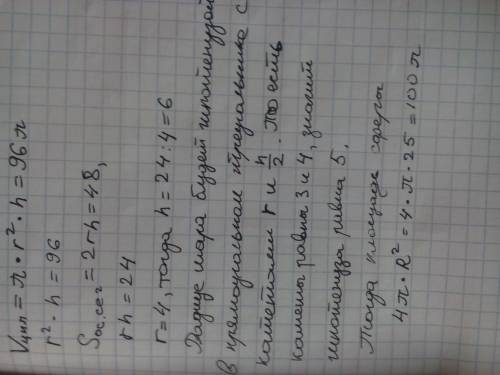 Vцил = π · r² · h = 96π
r² · h = 96
Sос.сеч = 2rh = 48,
rh = 24
r = 4, тогда h = 24 : 4 = 6
Радиус шара будет гипотенузой
в прямоугольном треугольнике с
катетами r и h/2. То есть
катеты равны 3 и 4, значит
гипотенуза равна 5.
Тогда площадь сферы
4π · R² = 4 · π · 25 = 100π